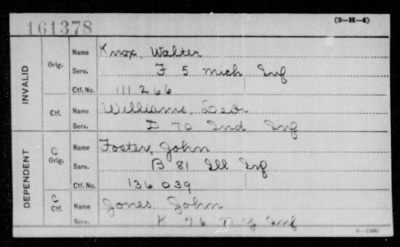 (3-H-4)
161378
INVALID
Orig.
Name Knox, Walter
Serv. F 5 Mich Inf
Ctf. No. 111266
Ctf.
Name Williams, Geo
Serv. I 70 Ind Inf
DEPENDENT
C
Orig.
Name Foster, John
Serv. B 81 Ill Inf
Ctf. No. 136039
C
Ctf.
Name Jones, John
Serv. K 76 N Y Inf